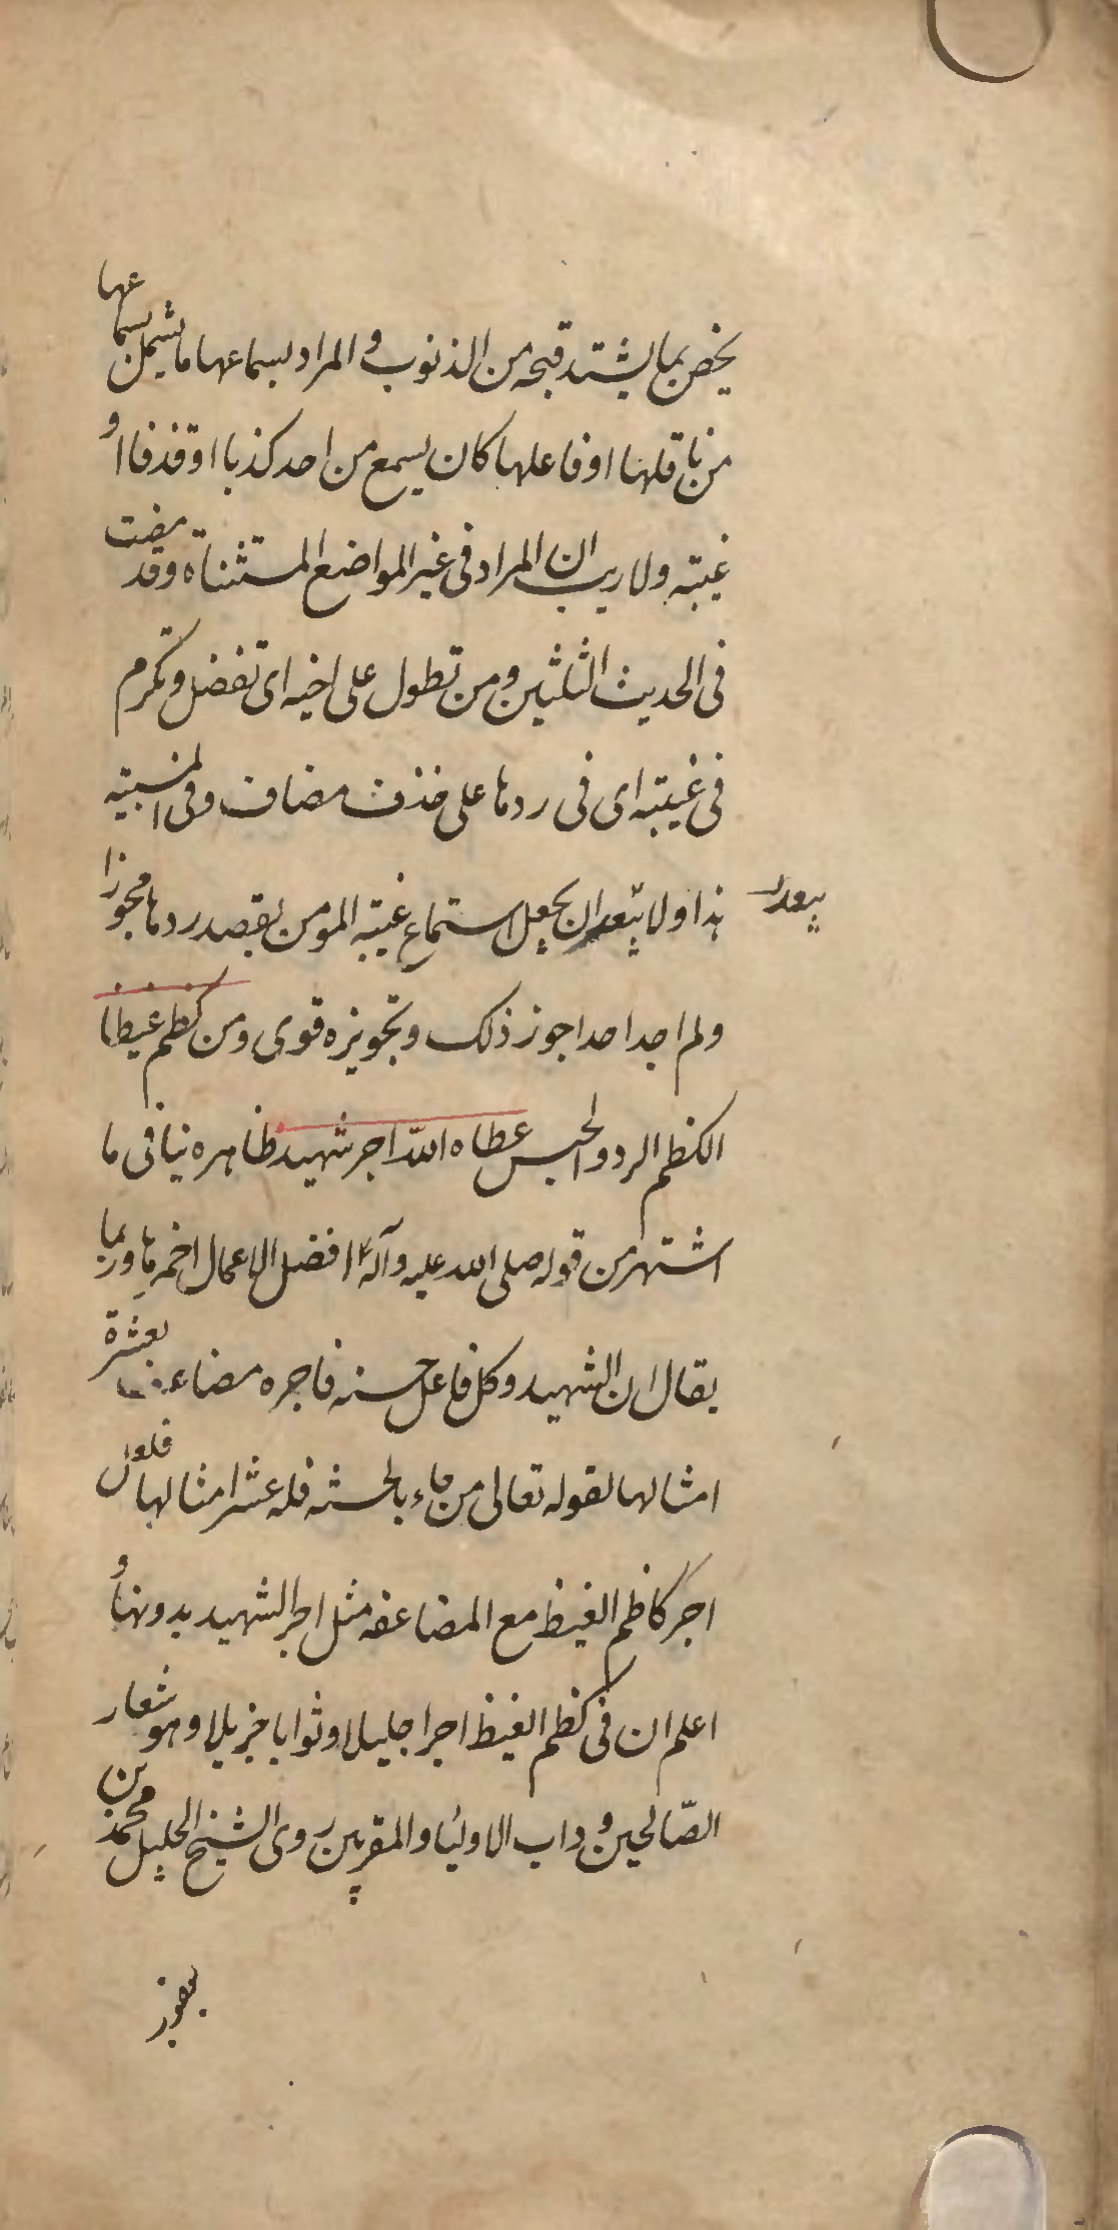 يخص بما يشتد قبحه من الذنوب و المراد بسماعها ما يشمل سماعها
من ناقلها او فاعلها كان يسمع من احد كذبا او قذفا او
غيبته ولا ريب ان المراد فى غير المواضع المستثناة وقد مضت
فى الحديث الثلثين ومن تطول على اخيه اى تفضل وتكرم
فى غيبته اى فى ردها على حذف مضاف وفى
هذا ولا يبعد ان يجعل استماع غيبة المومن بقصد ردها مجوزا
يبعد
ولم اجد احدا جوز ذلك وتجويزه قوى ومن كظم غيظا
الكظم الرد والحبس عطاه الله اجر شهيد ظاهره ينافى ما
اشتهر من قوله صلى الله عليه وآله افضل الاعمال احمزها وربما
يقال ان الشهيد وكل فاعل حسنه فاجره مضاعف بعشرة
امثالها لقوله تعالى من جاء بالحسنه فله عشر امثالها فلعل
اجر كاظم الغيظ مع المضاعفه مثل اجر الشهيد بدونها و
اعلم ان فى كظم الغيظ اجرا جليلا وثوابا جزيلا وهو شعار
الصّالحين و داب الاولياء والمقربين روى الشيخ الجليل محمد بن